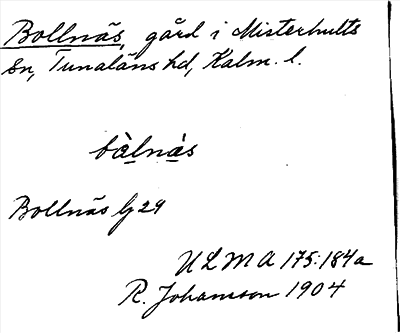 Bollnäs, gård i Misterhults
sn, Tunaläns hd, Kalm. l.
bàlnàs
Bollnäs lj 29
ULMA 175:184a
R. Johansson 1904